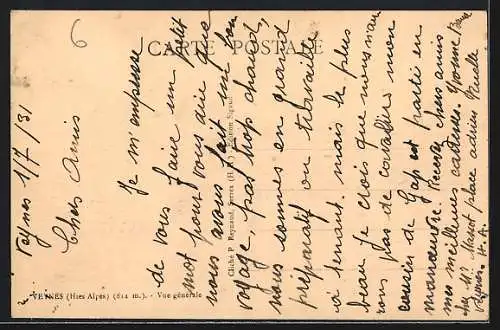 6
CARTE POSTALE
Veynes 1/7/31
Chers Amis
Je m'empresse
de vous faire un petit
mot pour vous dire que
nous avons fait un bon
voyage pas trop chaud,
nous sommes en grand
préparatif on travaille
à tenant. mais le plus
beau je crois que nous n'au
rons pas de cavalier mon
cousin de Gap est parti en
manœuvre. Recevez chers amis
mes meilleures caresses. Yvonne
chez Mr place adrien Ruelle
Veynes H. A.
VEYNES (Htes Alpes) (814 m.) - Vue générale
Cliché P. Reynaud, Serres (H.-A.) Edition Signac